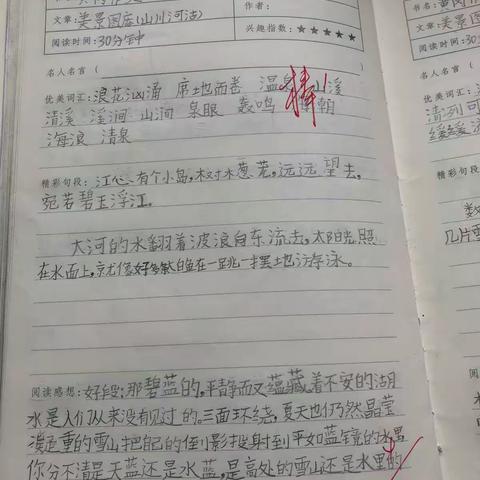 作者:
文章:美景图库(山川河流)
兴趣指数:★★★★★
阅读时间:30分钟
名人名言(
优美词汇:浪花汹涌 席地而卷 温泉 山溪
清溪 溪涧 山涧 泉眼 轰鸣 朝
海浪 清泉
棒
精彩句段:江心有个小岛,树木葱茏,远远望去,
宛若碧玉浮江。
大河的水翻着波浪向东流去,太阳光照
在水面上,就像好多条大鱼在一跳一摆地游泳。
阅读感想:好段:那碧蓝的,平静而又蕴藏着不安的湖
水是人们从来没有见过的。三面环绕,夏天也仍然晶莹
的雪山把自己的倒影投射到平如蓝镜的水里
你分不清是天蓝还是水蓝,是高处的雪山还是水里的
书名:
文章:美
阅读时间:
名人名言
优美词汇:
清冽可
缓缓流
精彩句段:
数
几片雪
阅读感想: